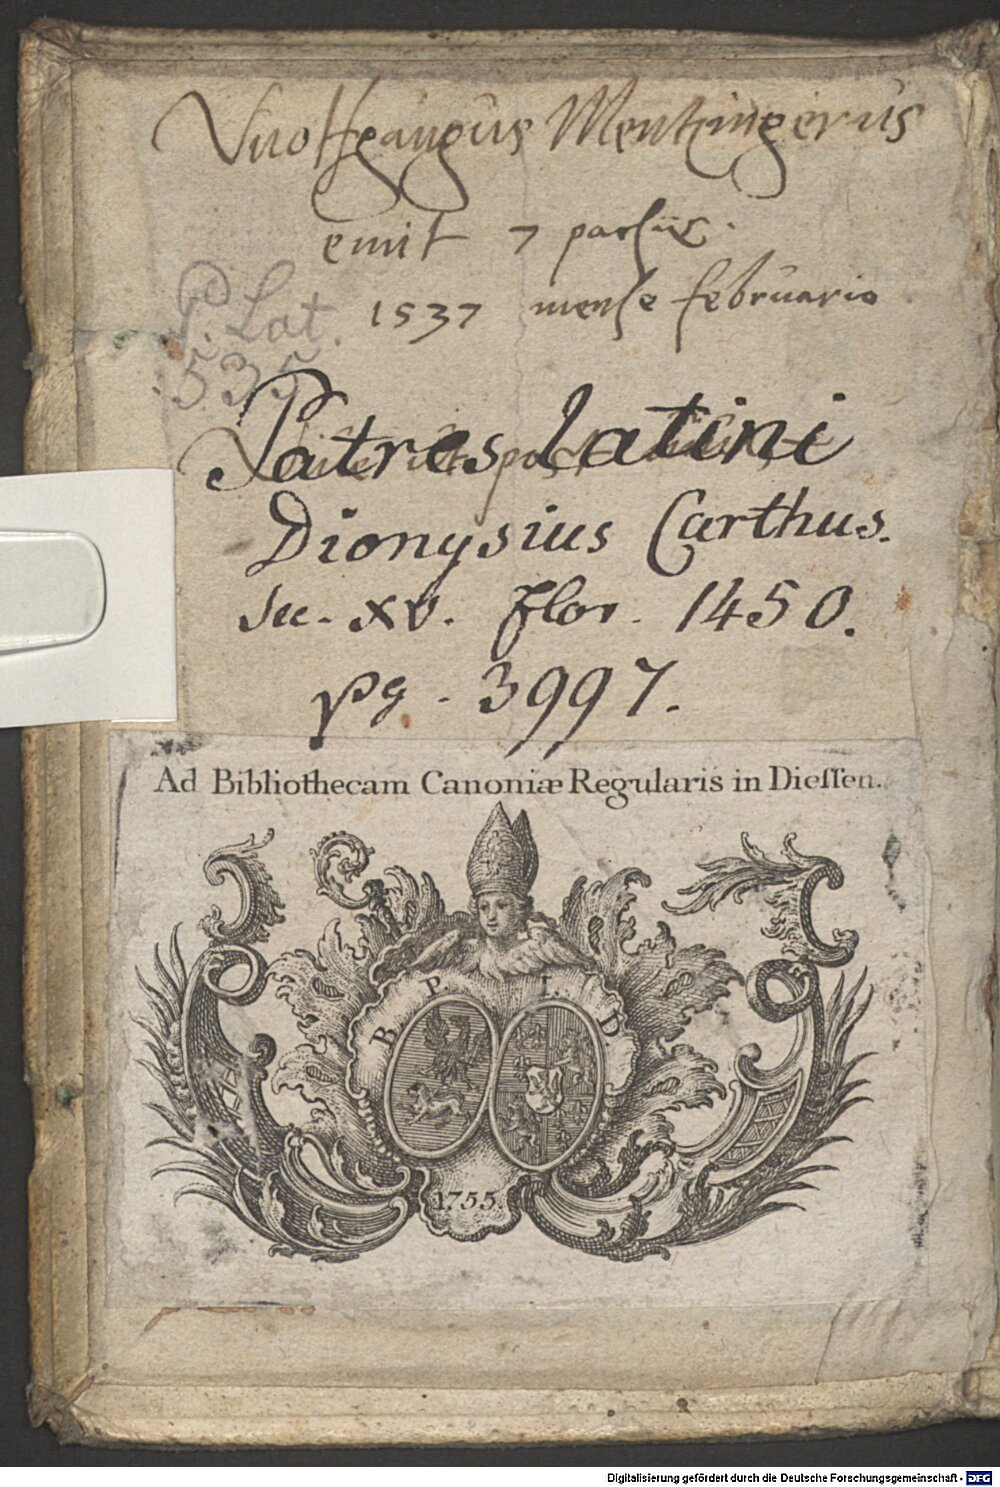 Vuolfgangus Mentzingerus
emit 7
1537 mense februario
P. Lat.
535
Patres Latini
Dionysius Carthus.
Sec. XV. flor. 1450.
pg. 3997.
Ad Bibliothecam Canoniæ Regularis in Diessen.
B P I D
1755.
Digitalisierung gefördert durch die Deutsche Forschungsgemeinschaft - DFG